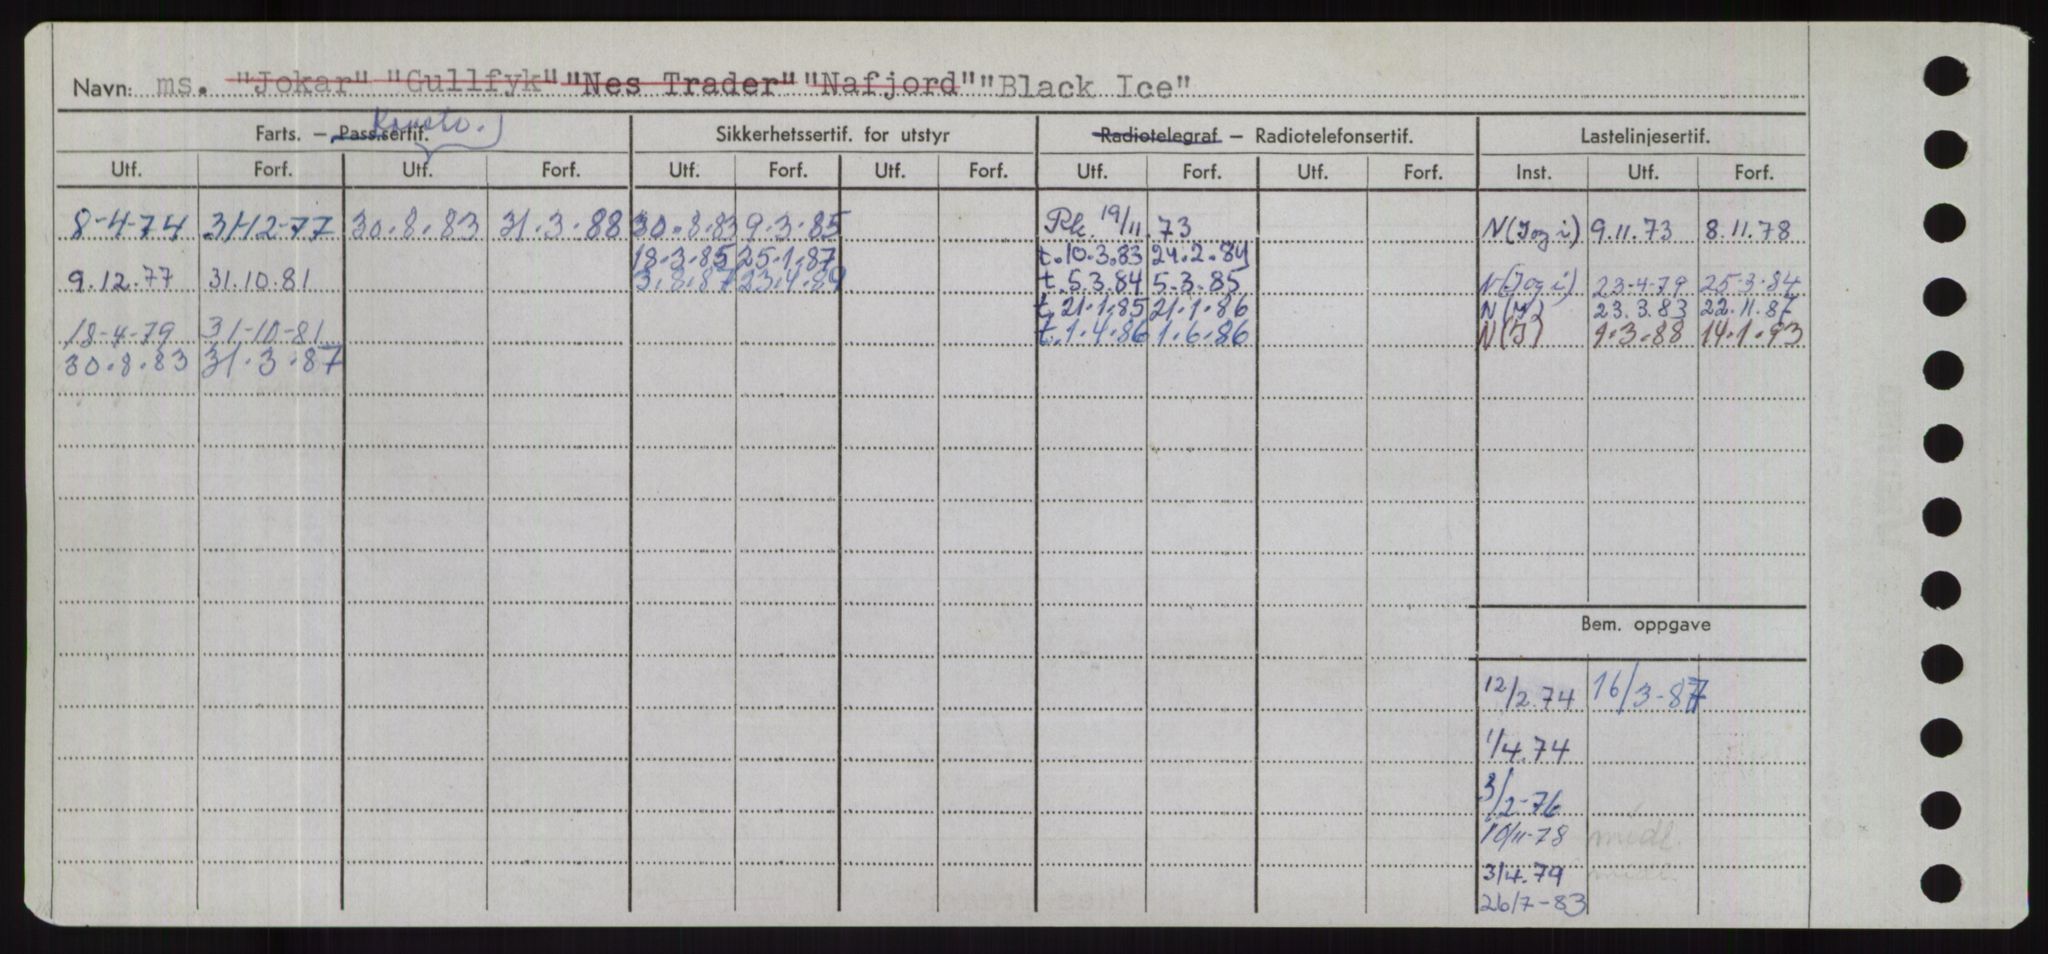 Navn: ms. "Jokar" "Gullfyk" "Nes Trader" "Nafjord" "Black Ice"
Konstr.
Farts. — Pass.sertif. Sikkerhetssertif. for utstyr Radiotelegraf. — Radiotelefonsertif. Lastelinjesertif.
Utf. Forf. Utf. Forf. Utf. Forf. Utf. Forf. Utf. Forf. Utf. Forf. Inst. Utf. Forf.
8-4-74 31-12-77 30.8.83 31.3.88 30.8.83 9.3.85 19/11.73 N(I og i) 9.11.73 8.11.78
18.3.85 25.1.87 t.10.3.83 24.2.84
9.12.77 31.10.81 3.8.87 23.4.89 t.5.3.84 5.3.85 N(I og i) 23-4-79 25-3-84
t.21.1.85 21.1.86 N(I) 23.3.83 22.11.87
18-4-79 31-10-81 t.1.4.86 1.6.86 N(I) 9.3.88 14.1.93
30.8.83 31.3.87
Bem. oppgave
12/2.74 16/3-87
1/4.74
3/2-76
10/11-78 midl.
3/4.79 midl.
26/7-83